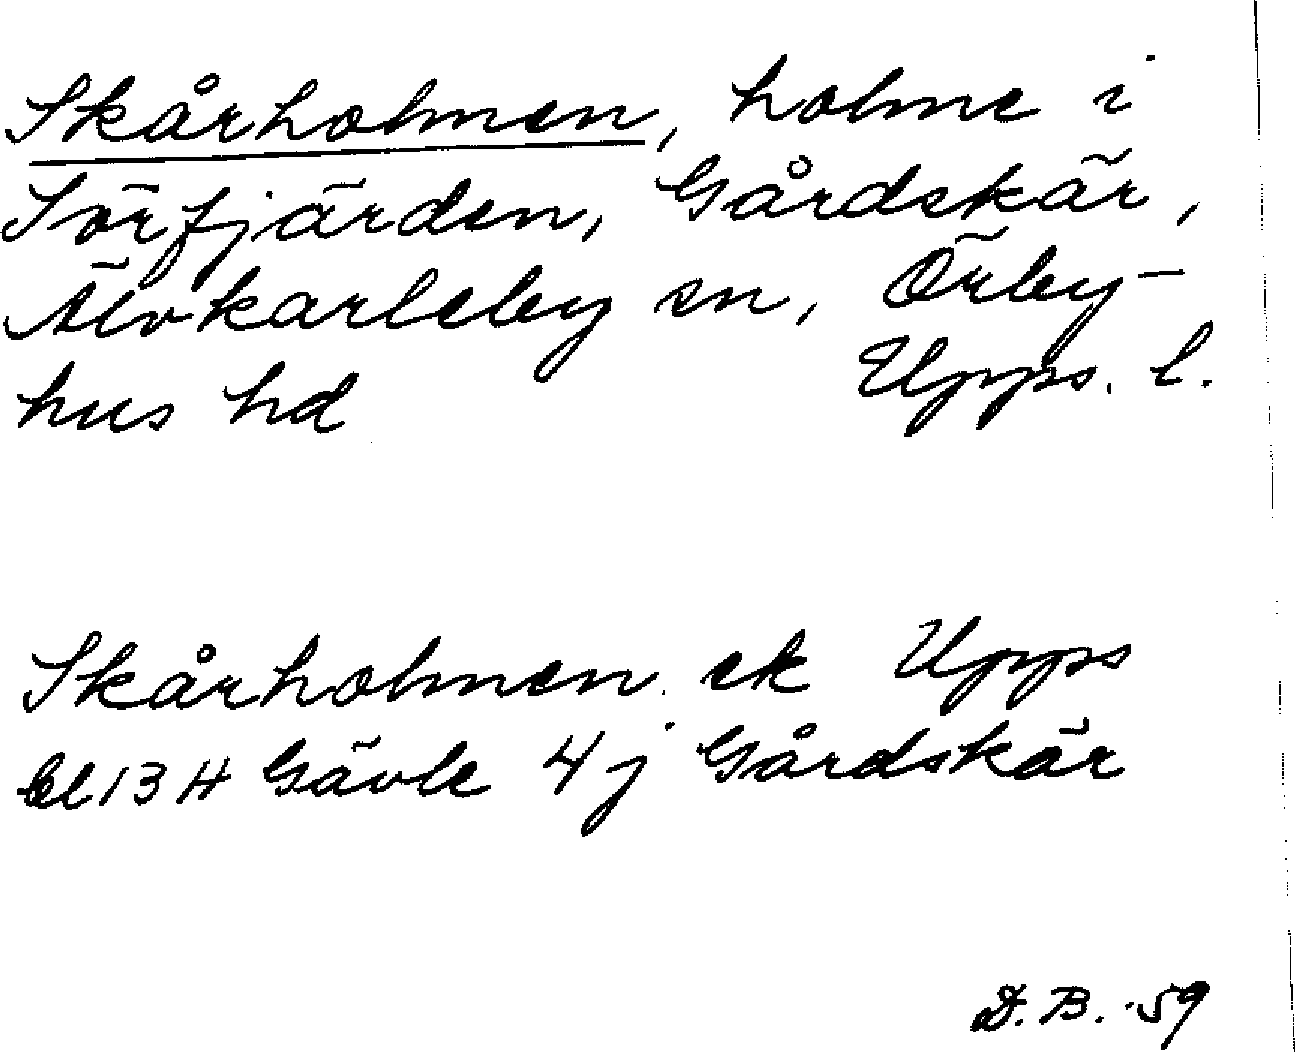 Skårholmen, holme i
Sörfjärden, Gårdskär,
Älvkarleby sn, Örby-
hus hd Upps. l.
Skårholmen. ek Upps
bl 13 H Gävle 4 j Gårdskär
D. B. -59